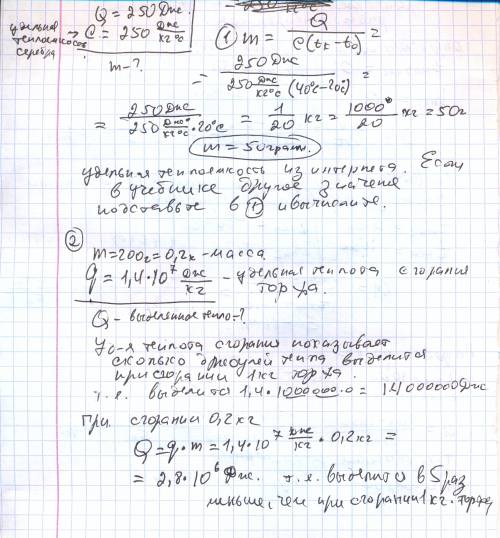 Q = 250 Дж.
удельная теплоемкость серебра → C = 250 Дж/кг°C
m - ?
① m = Q / C(tк - t0) =
= 250 Дж / 250 Дж/кг°C (40°C - 20°C) =
= 250 Дж / 250 Дж/кг°C · 20°C = 1/20 кг = 1000/20 кг = 50г
m = 50 грамм.
удельная теплоемкость из интернета. Если
в учебнике другое значение
подставьте в ① и вычислите.
②
m = 200г = 0,2к - масса
q = 1,4·10⁷ Дж/кг - удельная теплота сгорания
торфа.
Q - выделенное тепло - ?
Уд-я теплота сгорания показывает
сколько джоулей тепла выделится
при сгорании 1 кг торфа
т.е. выделится 1,4·10000000 = 14000000 Дж
При сгорании 0,2 кг
Q = q·m = 1,4·10⁷ Дж/кг · 0,2 кг =
= 2,8·10⁶ Дж. т.е. выделится в 5 раз
меньше, чем при сгорании 1 кг. торфа